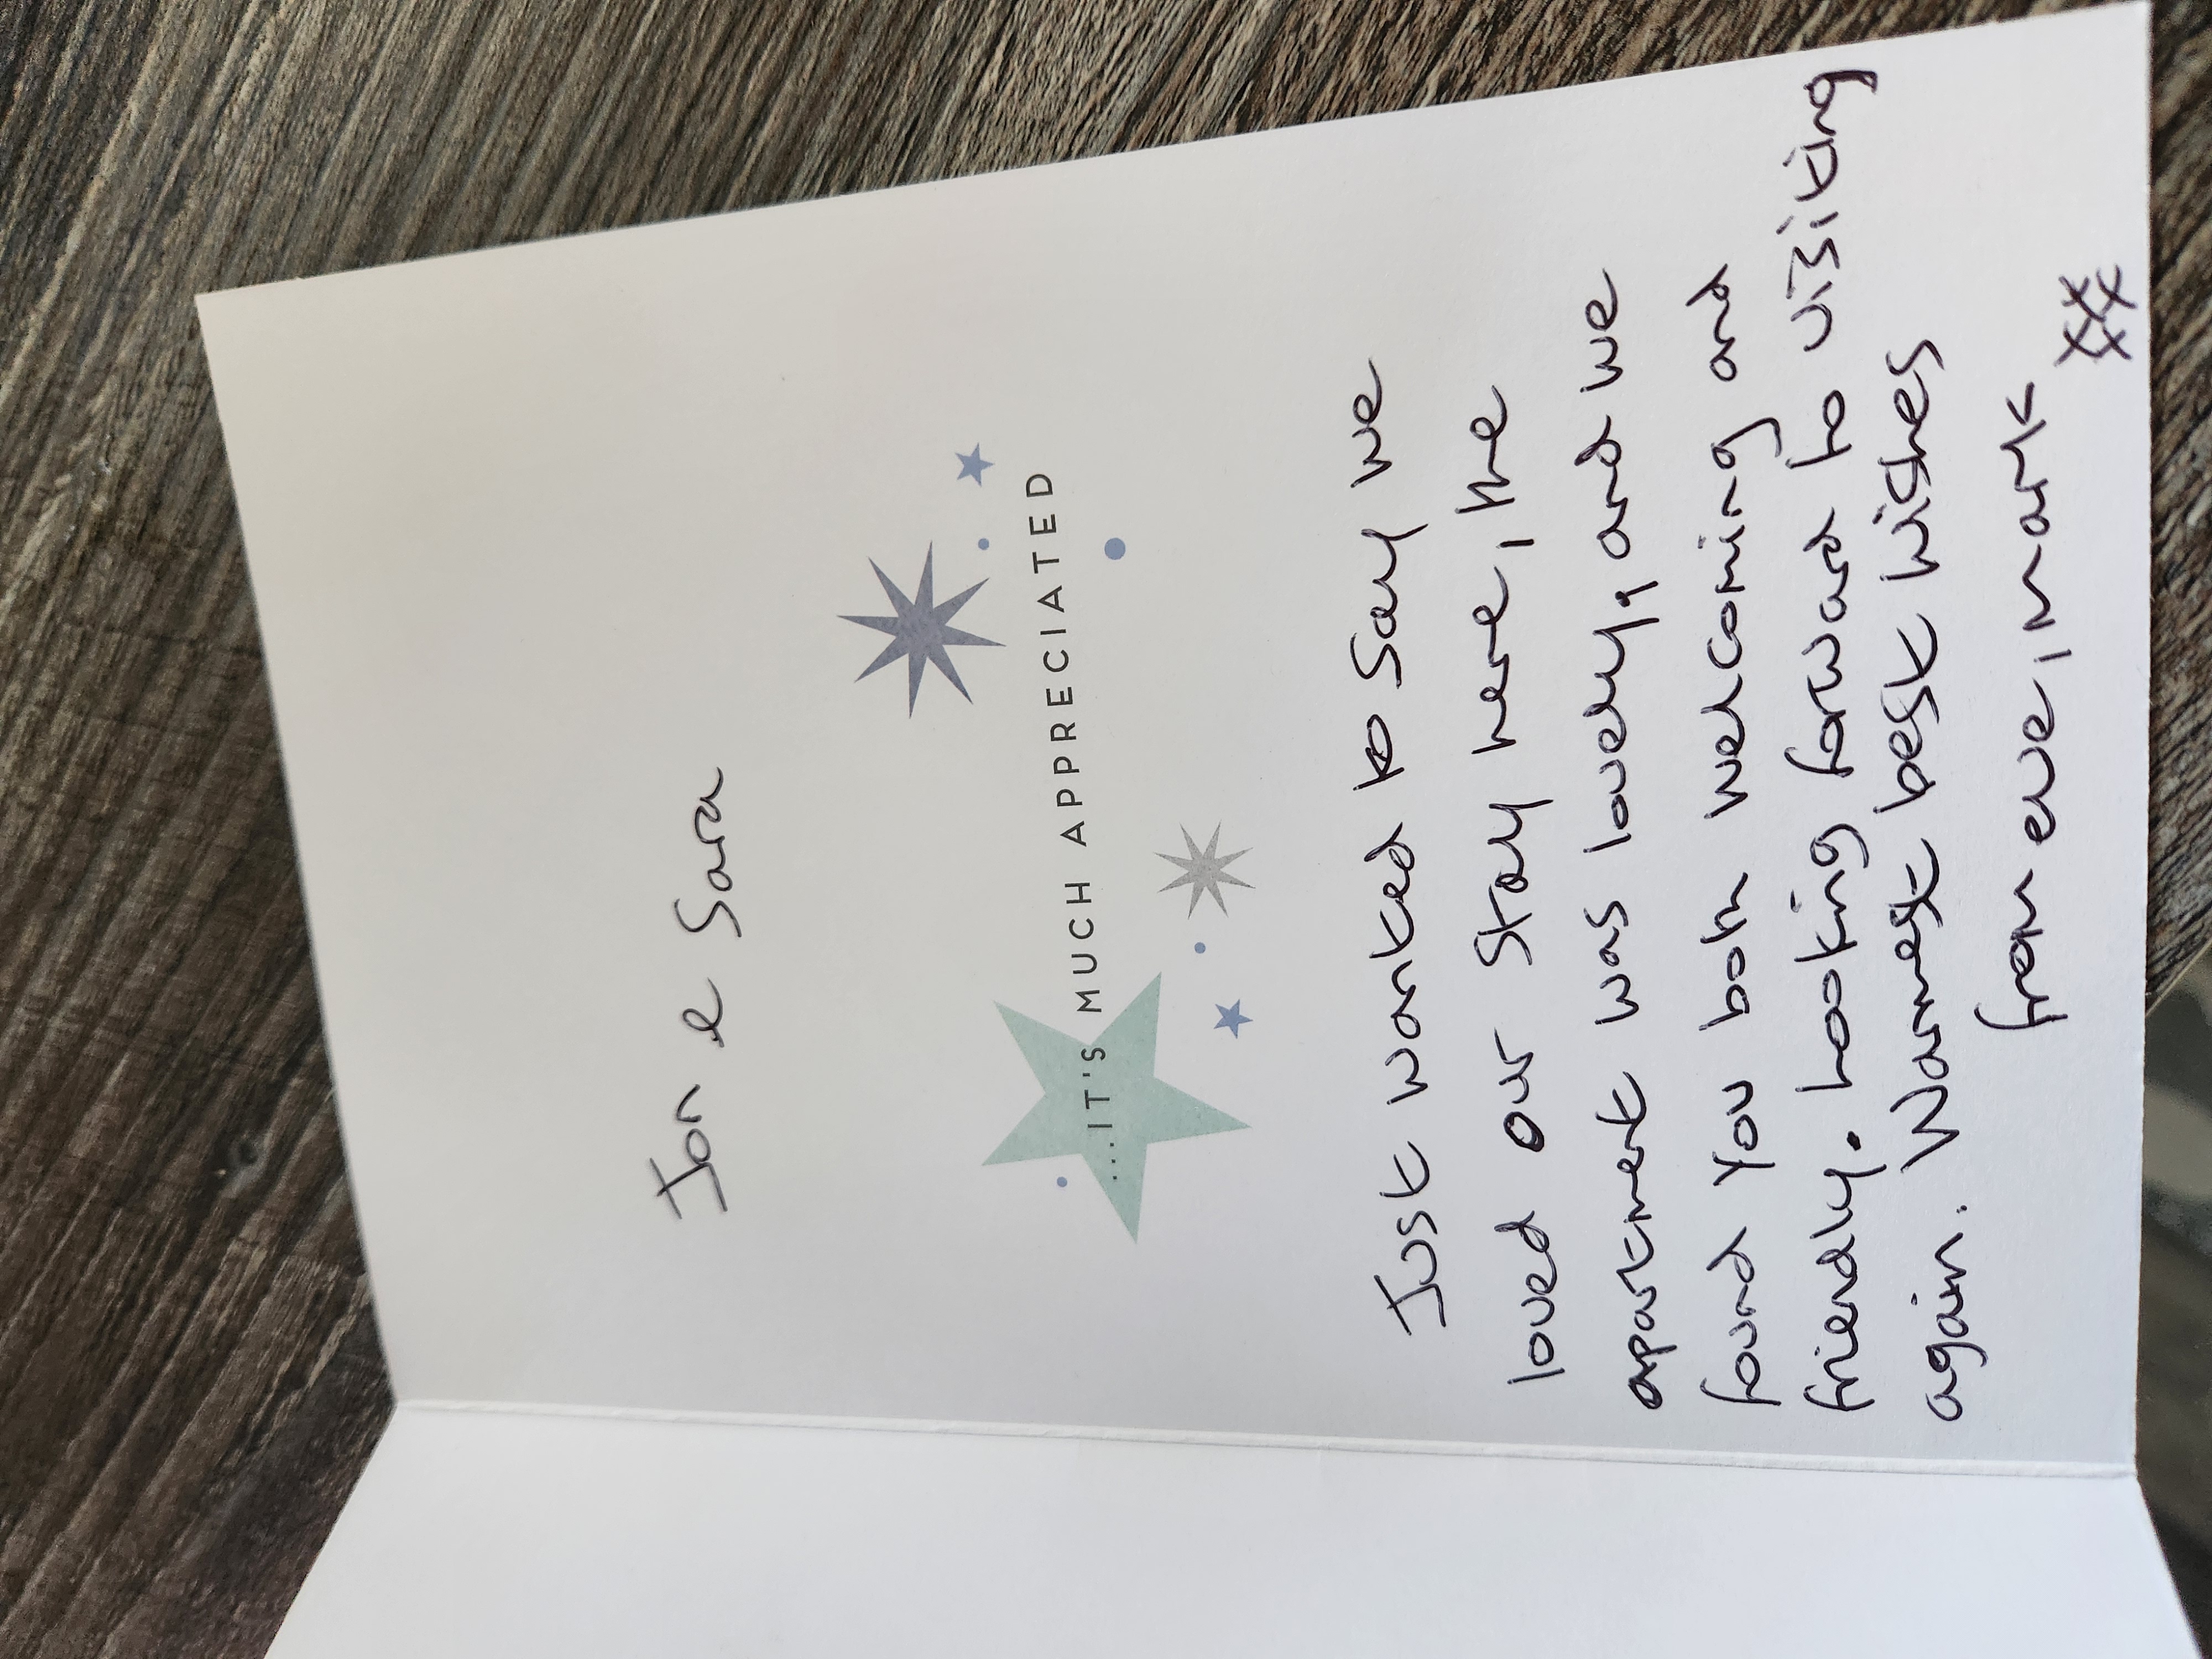 Jon & Sara
...IT'S MUCH APPRECIATED
Just wanted to say we
loved our stay here, the
apartment was lovely, and we
found you both welcoming and
friendly. Looking forward to visiting
again. Warmest best wishes
from eve, mark
xxxx